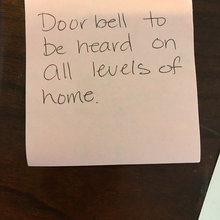 Door bell to
be heard on
all levels of
home.